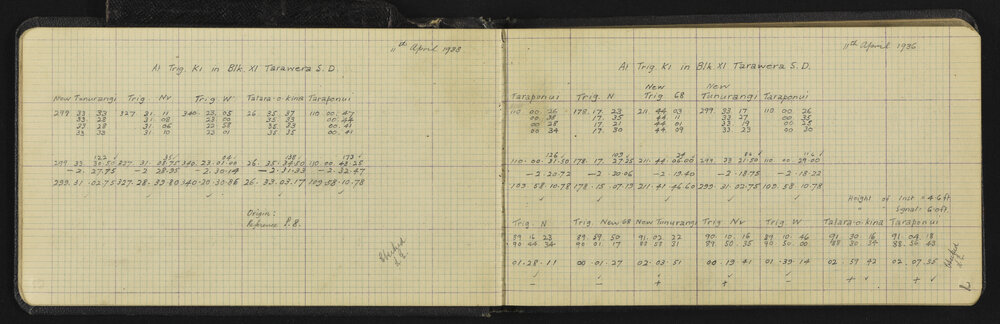 11th April 1933
At Trig. K1 in Blk. XI Tarawera S.D.
New Tunurangi Trig. Nv Trig. W Tatara-o-kina Taraponui
299 33 33 327 31 11 340 23 05 26 35 37 110 00 47
33 28 31 08 23 00 35 33 00 44
33 28 31 06 22 58 35 33 00 41
33 33 31 10 23 01 35 35 00 41
299 33 30.50 327 31 08.75 340 23 01.00 26 35 34.50 110 00 43.25
-2 27.75 -2 28.95 -2 30.14 -2 31.33 -2 32.47
299.31.02.75 327.28.39.80 340.20.30.86 26.33.03.17 109.58.10.78
Origin:
Reference P.8.
Checked
11th April 1936
At Trig. K1 in Blk XI Tarawera S.D.
Taraponui Trig. N New Trig 68 New Tunurangi Taraponui
110 00 26 178 17 23 211 44 03 299 33 17 110 00 26
00 38 17 35 44 11 33 27 00 35
00 28 17 21 44 01 33 19 00 25
00 34 17 30 44 09 33 23 00 30
110.00.31.50 178.17.27.25 211.44.06.00 299.33.21.50 110.00.29.00
-2 20.72 -2 20.06 -2 19.40 -2 18.75 -2 18.22
109.58.10.78 178.15.07.19 211.41.46.60 299.31.02.75 109.58.10.78
Height of Inst = 4.6 ft.
" " Signal = 6.0 ft
Trig. N Trig. New 68 New Tunurangi Trig. Nv Trig. W Tatara-o-kina Taraponui
89 16 23 89 59 50 91 02 22 90 10 16 89 10 46 91 30 16 91 04 18
90 44 34 90 01 17 88 58 31 89 50 35 90 50 00 88 30 34 88 56 43
01.28.11 00.01.27 02.03.51 00.19.41 01.39.14 02 59 42 02.07.35
- - + + - + +
Checked